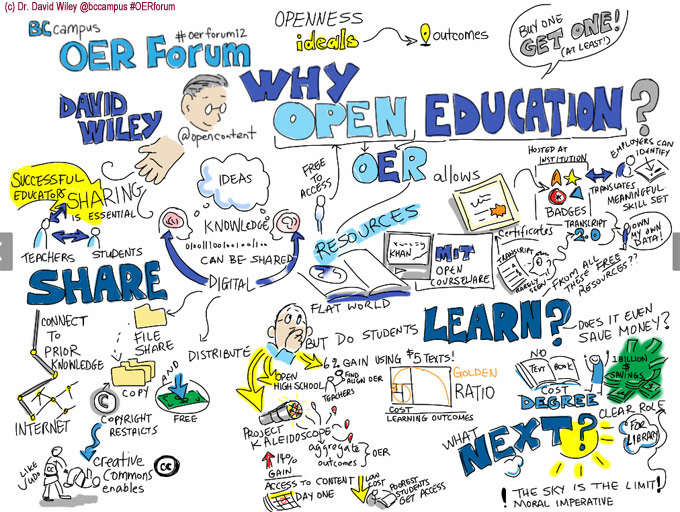 (c) Dr. David Wiley @bccampus #OERforum
BCcampus
#oerforum12
OER Forum
OPENNESS
ideals
outcomes
BUY ONE
GET ONE!
(AT LEAST!)
DAVID
WILEY
@opencontent
WHY
OPEN EDUCATION?
OER
allows
FREE
TO
ACCESS
HOSTED AT
INSTITUTION
BADGES
TRANSLATES
EMPLOYERS CAN
IDENTIFY
MEANINGFUL
SKILL SET
TRANSCRIPT
2.0
OWN
MY OWN
DATA!
Certificates
TRANSCRIPT
RARELY
SEEN
FROM ALL
THESE FREE
RESOURCES??
SUCCESSFUL
EDUCATORS
SHARING
IS ESSENTIAL
TEACHERS
STUDENTS
IDEAS
KNOWLEDGE
CAN BE SHARED
DIGITAL
RESOURCES
FLAT WORLD
KHAN
MIT
OPEN
COURSEWARE
SHARE
CONNECT
TO
PRIOR
KNOWLEDGE
INTERNET
FILE
SHARE
COPY
AND
FREE
©
COPYRIGHT
RESTRICTS
DISTRIBUTE
LIKE
JUDO
creative
Commons
enables
cc
BUT DO STUDENTS
LEARN?
6% GAIN USING $5 TEXTS!
OPEN
HIGH SCHOOL
FIND
ALIGN OER
TEACHERS
GOLDEN
RATIO
COST
LEARNING OUTCOMES
PROJECT
KALEIDOSCOPE
aggregate
outcomes
OER
14%
GAIN
ACCESS TO CONTENT
DAY ONE
LOW
COST
POOREST
STUDENTS
GET ACCESS
DOES IT EVEN
SAVE MONEY?
NO
TEXT BOOK
COST
DEGREE
1 BILLION
$
SAVINGS
WHAT
NEXT?
CLEAR ROLE
FOR LIBRARY
! THE SKY IS THE LIMIT!
MORAL IMPERATIVE